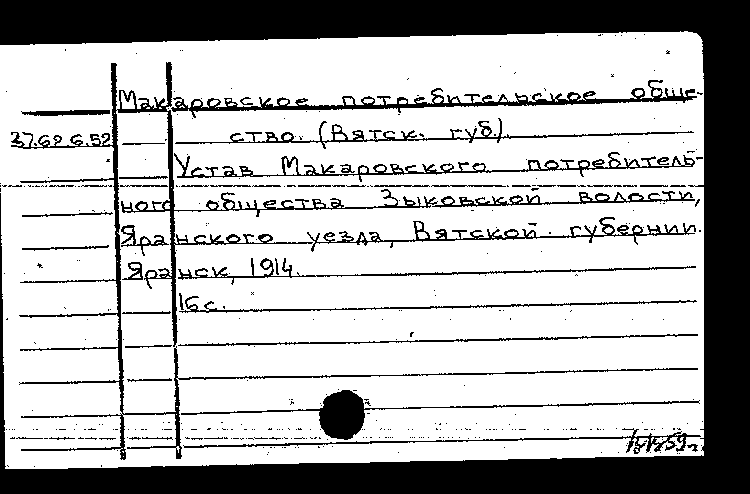 Макаровское потребительское обще-
37.69.6.59 ство. (Вятск. губ.).
Устав Макаровского потребитель-
ного общества Зыковской волости,
Яранского уезда, Вятской губернии.
Яранск, 1914.
16 с.